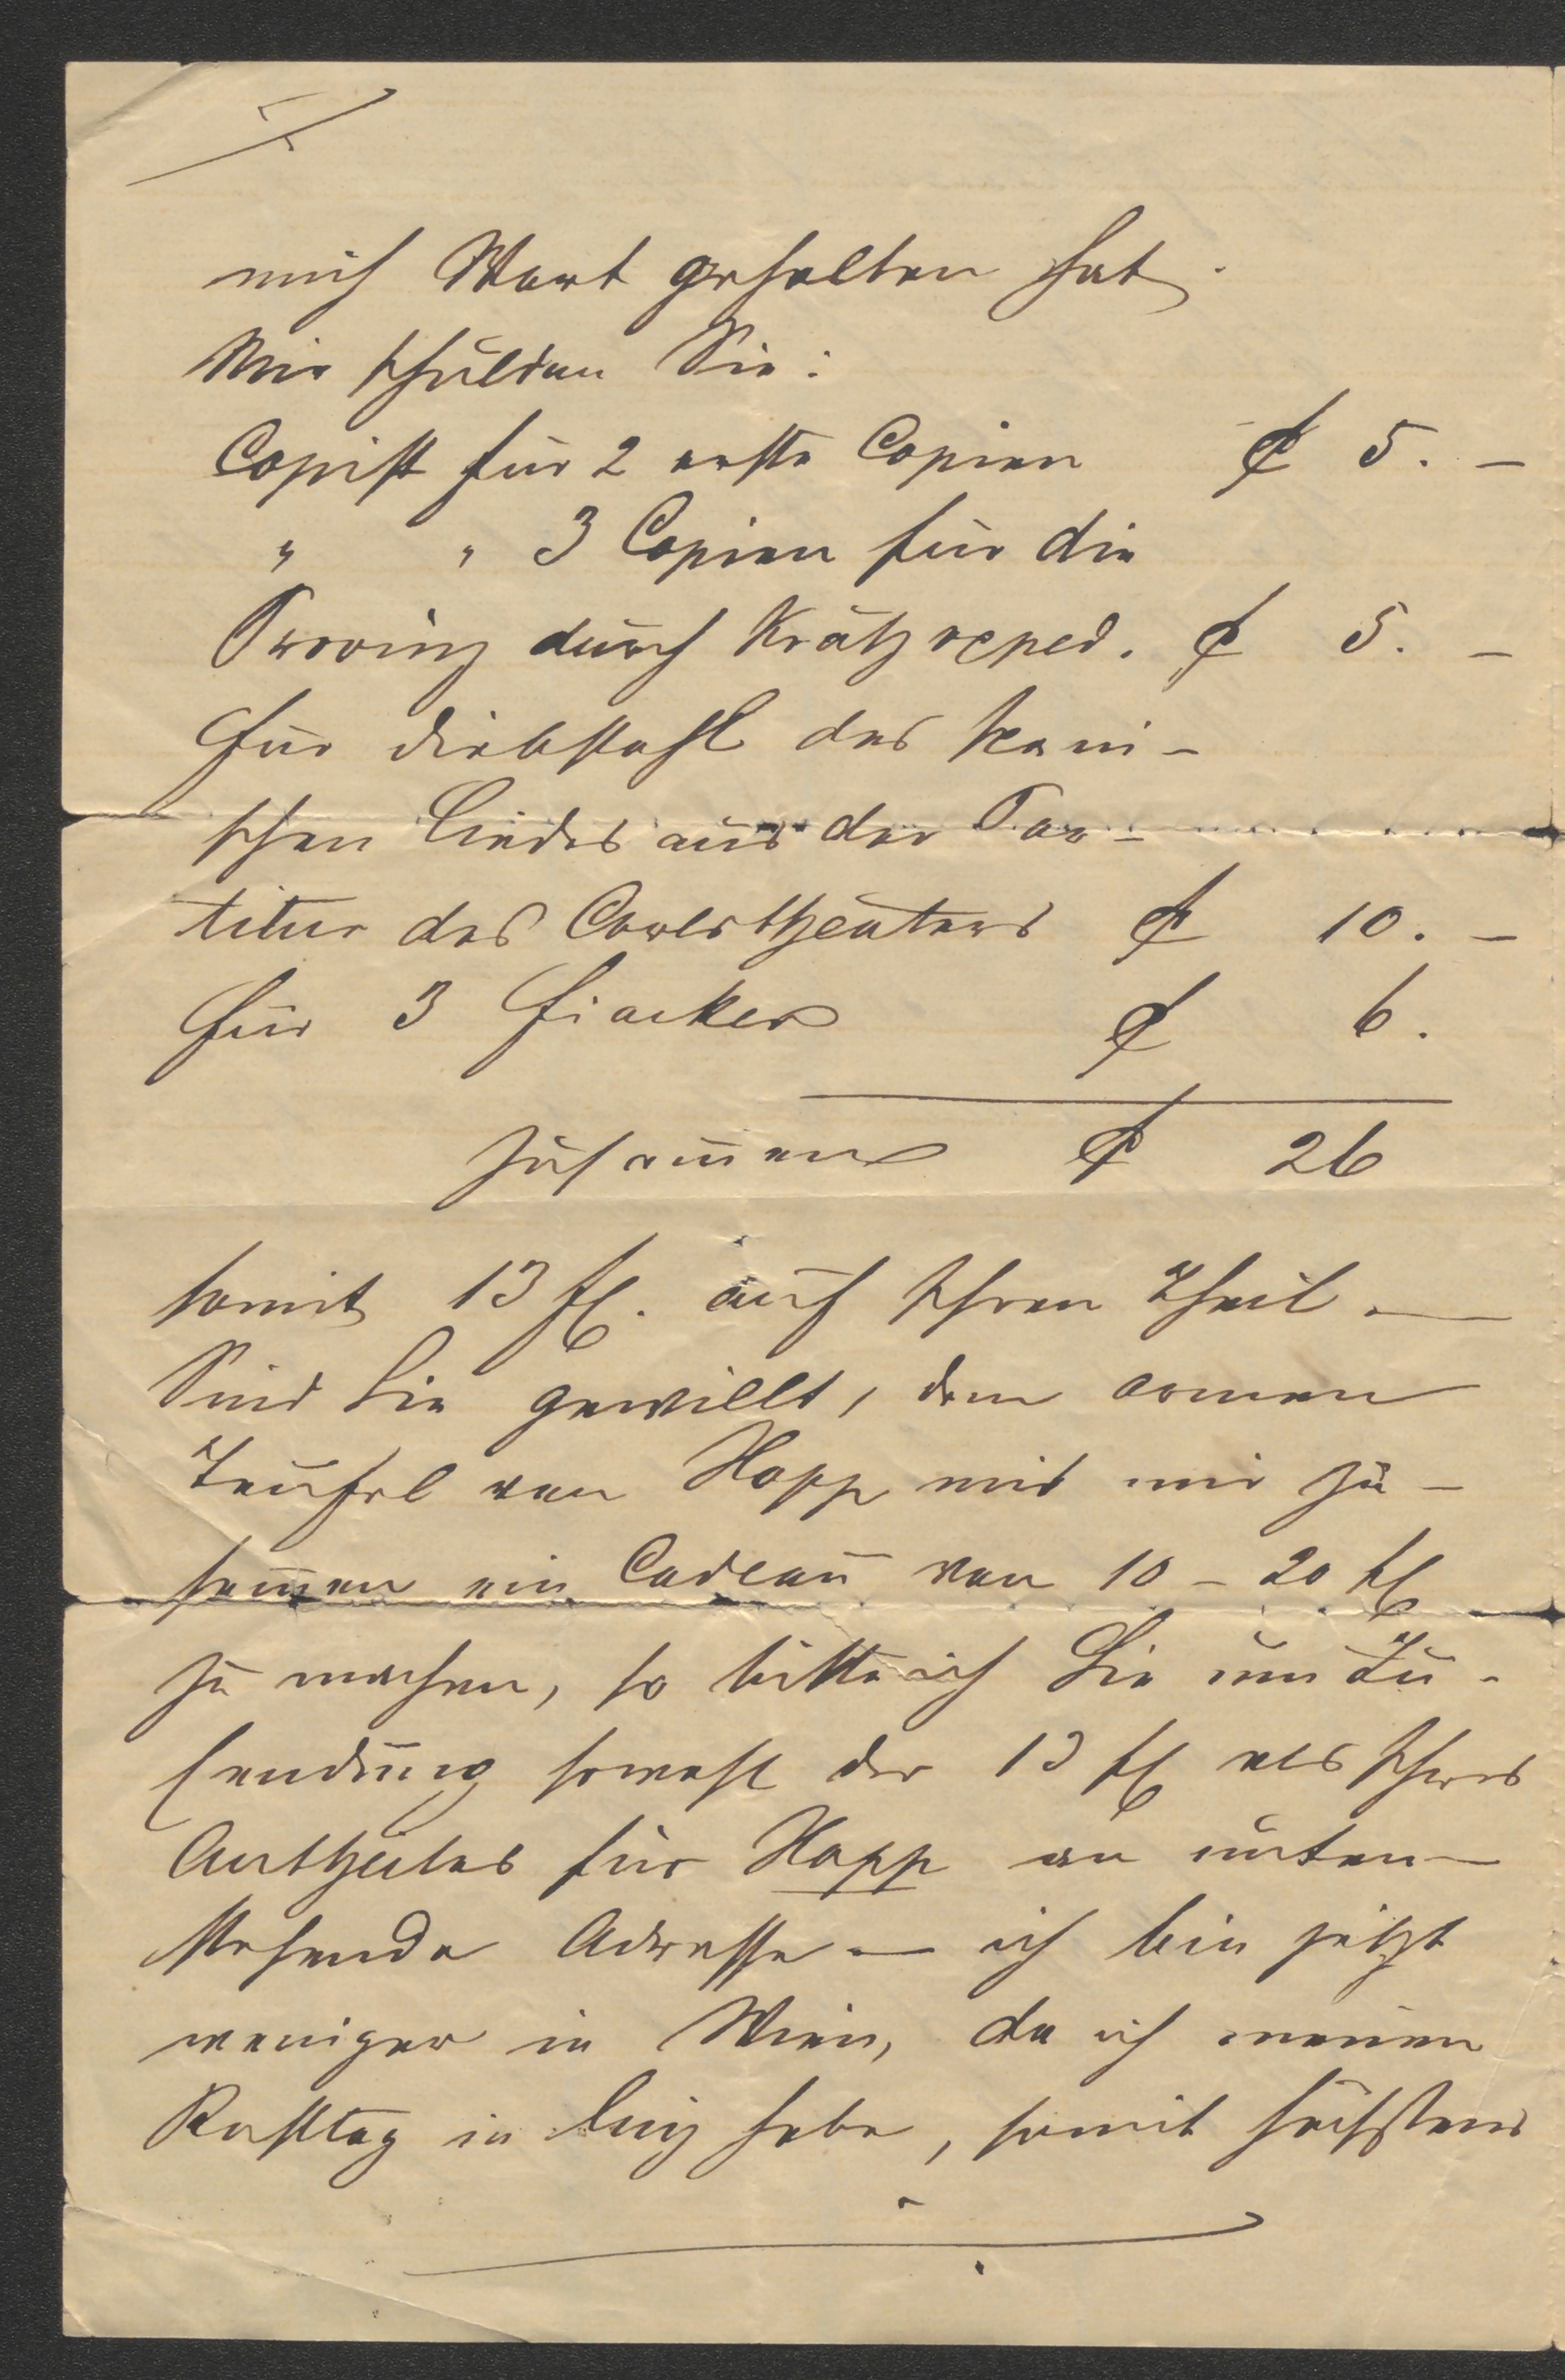 mich Wort gehalten hat.
Mir schulden Sie:
Copist für 2 erste Copien f 5. –
" " 3 Copien für die
Provinz durch Krätz exped. f 5. –
Für Diebstahl des
schen Liedes aus der Par-
titur des Carlstheaters f 10. –
Für 3 Fiacker f 6.
zusam̅en f 26
somit 13 fl. auf Ihren Theil. —
Sind Sie gewillt, dem armen
Teufel von Hopp mit mir zu-
sam̅en ein Cadeau von 10 – 20 fl
zu machen, so bitte ich Sie um Zu-
sendung sowohl der 13 fl als Ihres
Antheiles für Hopp an unten-
stehende Adresse — ich bin jetzt
weniger in Wien, da ich meinen
Rasttag in habe, somit höchstens